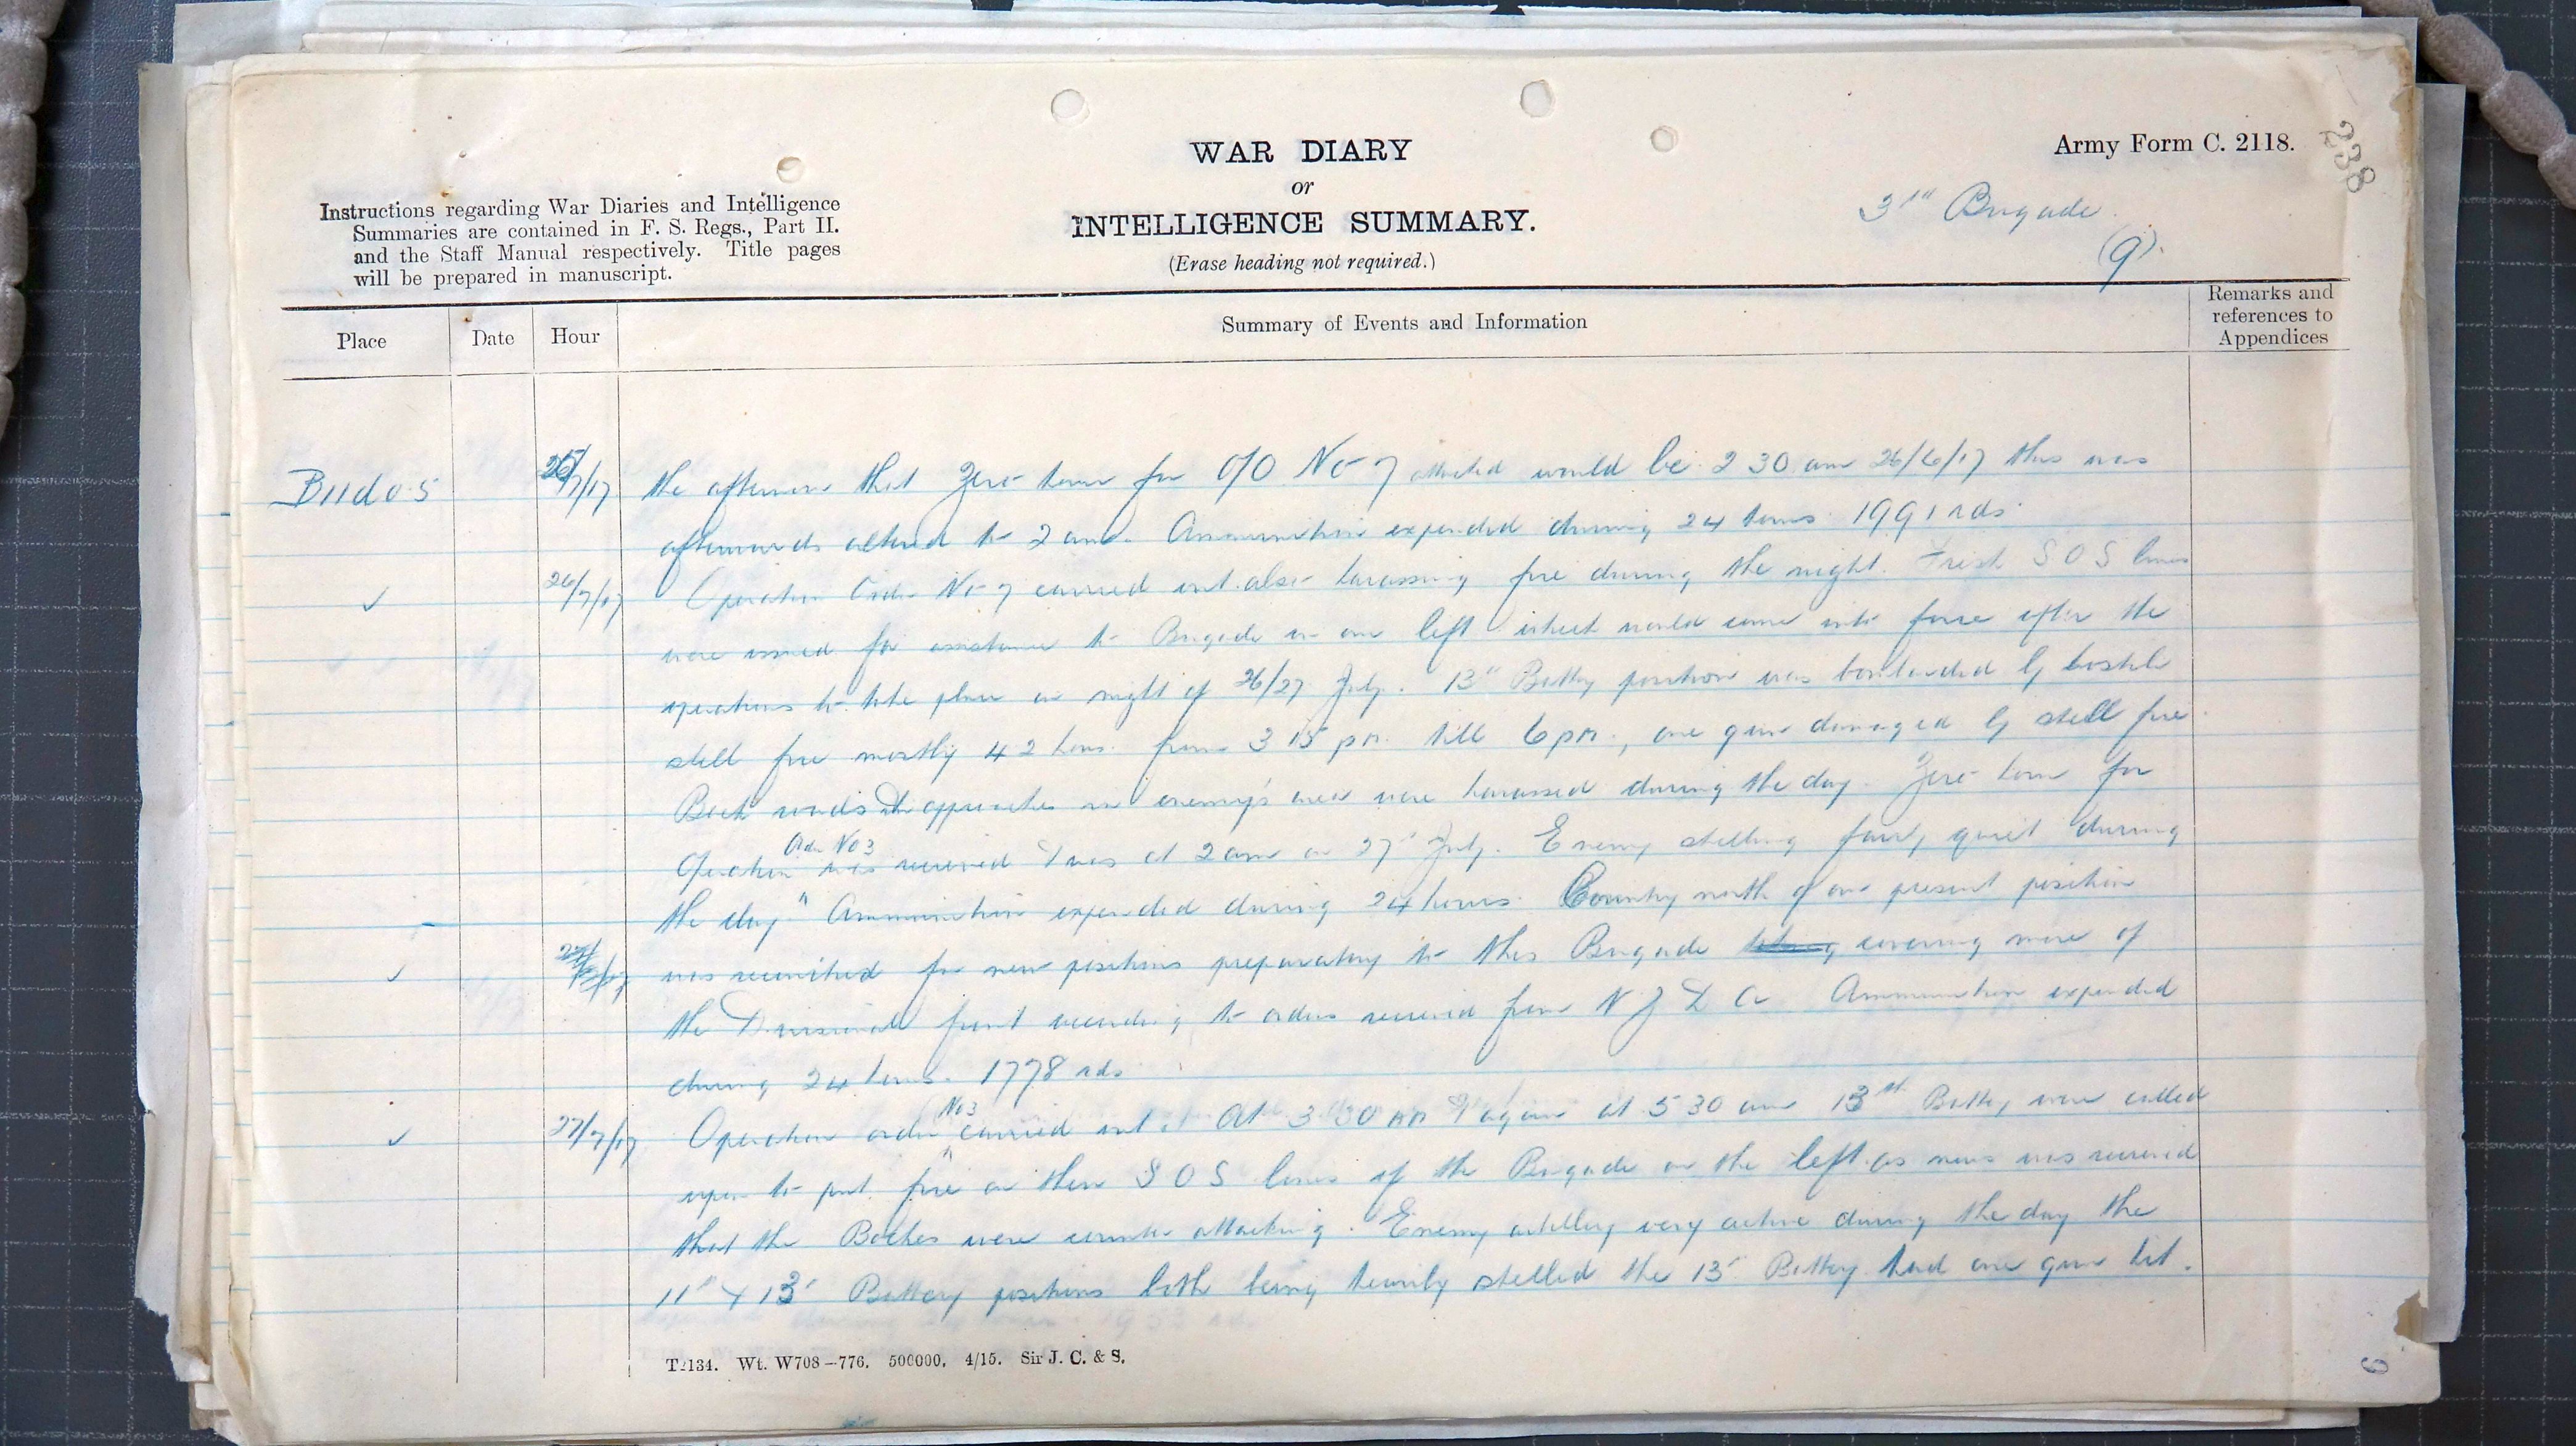 238
Army Form C. 2118.
WAR DIARY
or
INTELLIGENCE SUMMARY.
(Erase heading not required.)
Instructions regarding War Diaries and Intelligence
Summaries are contained in F. S. Regs., Part II.
and the Staff Manual respectively. Title pages
will be prepared in manuscript.
3rd Brigade
(9).
Place Date Hour Summary of Events and Information Remarks and references to Appendices
25/7/17 the afternoon that Zero hour for O/O No 7 attached would be 2 30 am 26/6/17 this was
afterwards altered to 2 am. Ammunition expended during 24 hours 1991 rds.
✓ 26/7/17 Operation Order No 7 carried out also harassing fire during the night. Fresh S O S lines
were issued for assistance to Brigade on our left which would come into force after the
operations to take place on night of 26/27 July. 13" Battery position was bombarded by hostile
shell fire mostly 4 2 hows. from 3 15 pm. till 6 pm., one gun damaged by shell fire.
Back roads & approaches in enemy's area were harassed during the day. Zero hour for
Operation Order No 3 was received & was at 2 am on 27" July. Enemy shelling fairly quiet during
the day. Ammunition expended during 24 hours. Country north of our present position
✓ was reconnoitred for new positions preparatory to this Brigade covering more of
the Divisional front according to orders received from N Z D A Ammunition expended
during 24 hours. 1778 rds
✓ 27/7/17 Operation order No 3 carried out. At 3 30 am & again at 5 30 am 13th Battery were called
upon to put fire on their S O S lines of the Brigade on the left as news was received
that the Boches were counter attacking. Enemy artillery very active during the day the
11" & 13" Battery positions both being heavily shelled the 13" Battery had one gun hit.
T2134. Wt. W708—776. 500000. 4/15. Sir J. C. & S.